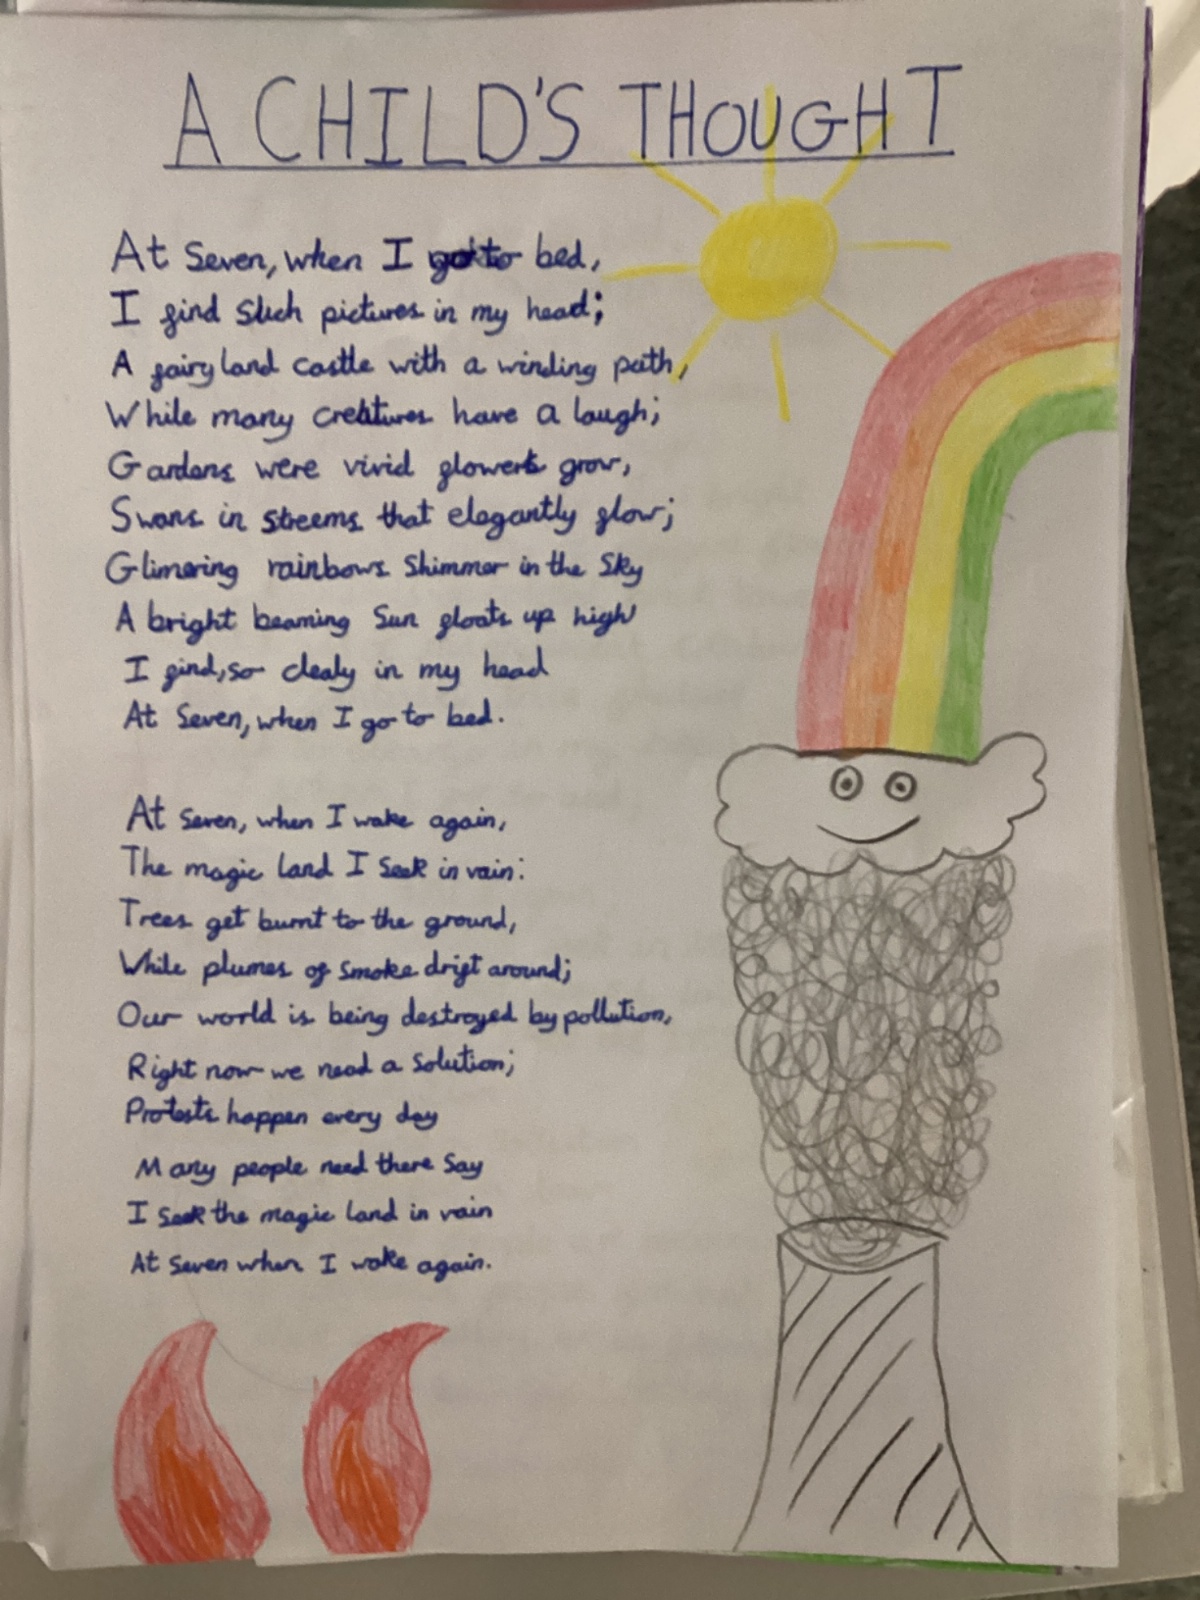 A CHILD'S THOUGHT
At Seven, when I go to bed,
I find such pictures in my head;
A fairyland castle with a winding path,
While many creatures have a laugh;
Gardens were vivid flowers grow,
Swans in streems that elegantly flow;
Glimering rainbows Shimmer in the Sky
A bright beaming Sun floats up high
I find, so clealy in my head
At Seven, when I go to bed.
At Seven, when I wake again,
The magic land I Seek in vain:
Trees get burnt to the ground,
While plumes of smoke drift around;
Our world is being destroyed by pollution,
Right now we need a Solution;
Protests happen every day
Many people need there Say
I seek the magic land in vain
At Seven when I wake again.